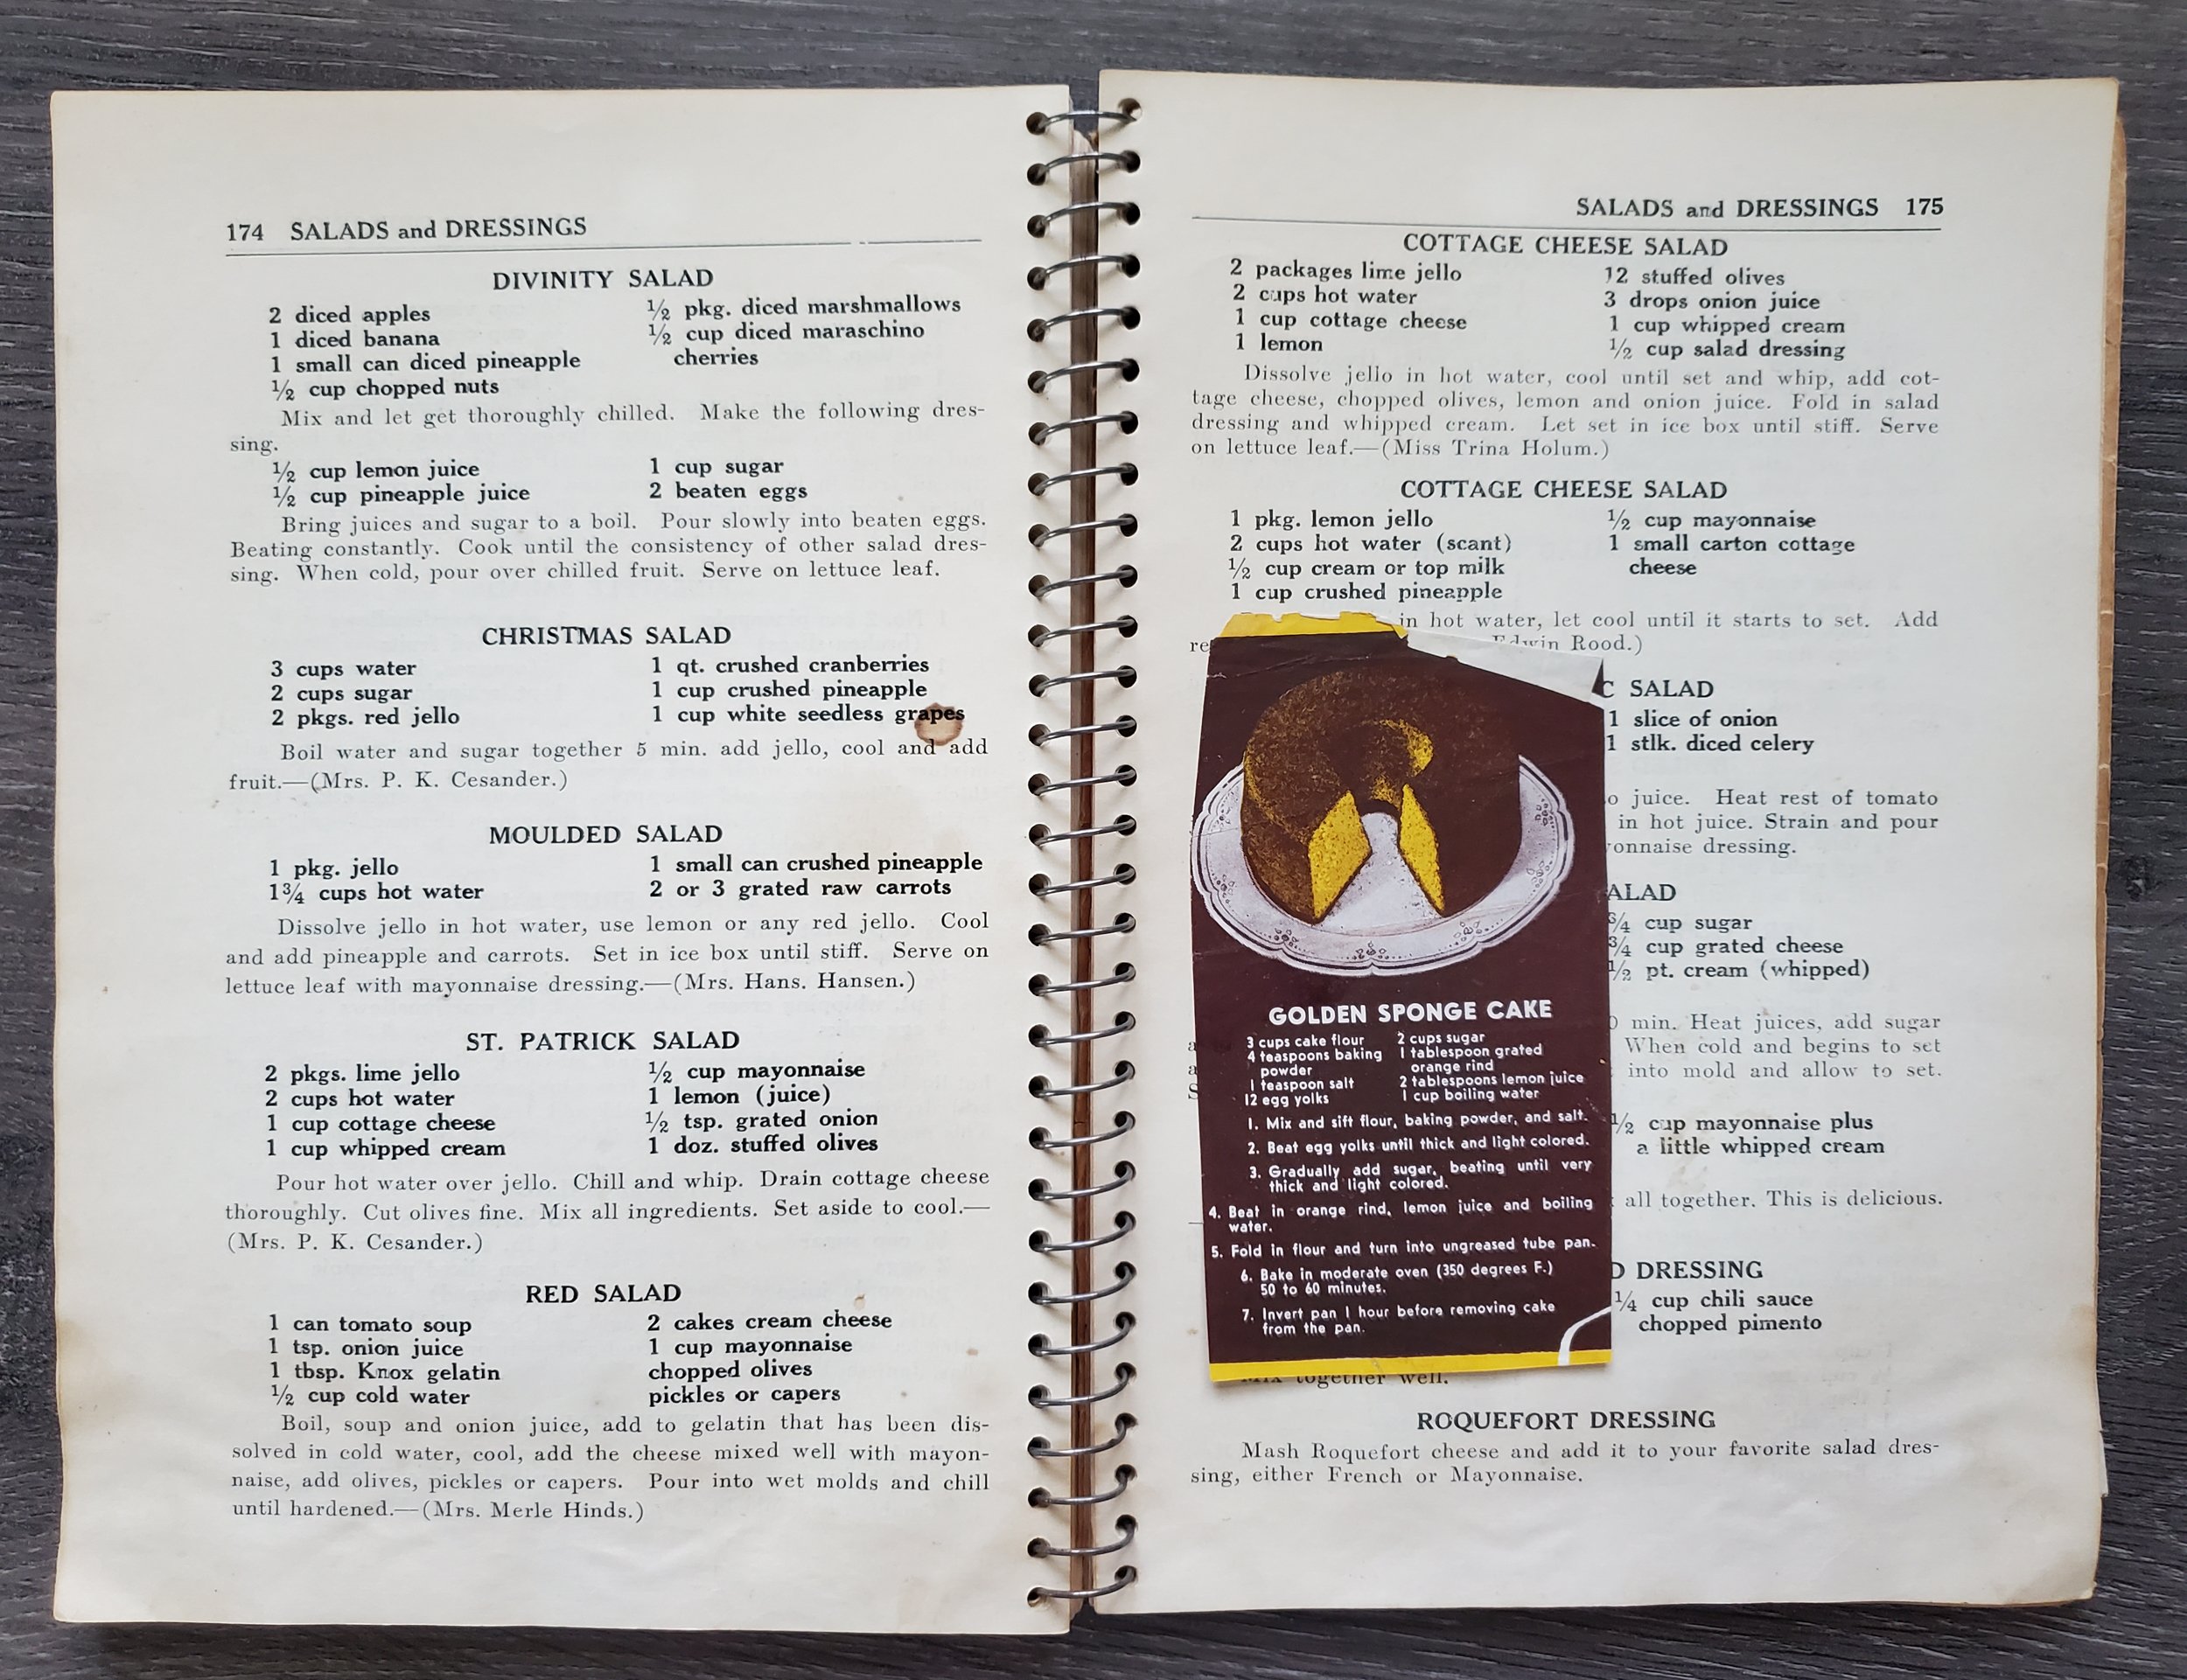 174 SALADS and DRESSINGS
DIVINITY SALAD
2 diced apples
1 diced banana
1 small can diced pineapple
½ cup chopped nuts
½ pkg. diced marshmallows
½ cup diced maraschino
cherries
Mix and let get thoroughly chilled. Make the following dres-
sing.
½ cup lemon juice
½ cup pineapple juice
1 cup sugar
2 beaten eggs
Bring juices and sugar to a boil. Pour slowly into beaten eggs.
Beating constantly. Cook until the consistency of other salad dres-
sing. When cold, pour over chilled fruit. Serve on lettuce leaf.
CHRISTMAS SALAD
3 cups water
2 cups sugar
2 pkgs. red jello
1 qt. crushed cranberries
1 cup crushed pineapple
1 cup white seedless grapes
Boil water and sugar together 5 min. add jello, cool and add
fruit.—(Mrs. P. K. Cesander.)
MOULDED SALAD
1 pkg. jello
1¾ cups hot water
1 small can crushed pineapple
2 or 3 grated raw carrots
Dissolve jello in hot water, use lemon or any red jello. Cool
and add pineapple and carrots. Set in ice box until stiff. Serve on
lettuce leaf with mayonnaise dressing.—(Mrs. Hans. Hansen.)
ST. PATRICK SALAD
2 pkgs. lime jello
2 cups hot water
1 cup cottage cheese
1 cup whipped cream
½ cup mayonnaise
1 lemon (juice)
½ tsp. grated onion
1 doz. stuffed olives
Pour hot water over jello. Chill and whip. Drain cottage cheese
thoroughly. Cut olives fine. Mix all ingredients. Set aside to cool.—
(Mrs. P. K. Cesander.)
RED SALAD
1 can tomato soup
1 tsp. onion juice
1 tbsp. Knox gelatin
½ cup cold water
2 cakes cream cheese
1 cup mayonnaise
chopped olives
pickles or capers
Boil, soup and onion juice, add to gelatin that has been dis-
solved in cold water, cool, add the cheese mixed well with mayon-
naise, add olives, pickles or capers. Pour into wet molds and chill
until hardened.—(Mrs. Merle Hinds.)
SALADS and DRESSINGS 175
COTTAGE CHEESE SALAD
2 packages lime jello
2 cups hot water
1 cup cottage cheese
1 lemon
12 stuffed olives
3 drops onion juice
1 cup whipped cream
½ cup salad dressing
Dissolve jello in hot water, cool until set and whip, add cot-
tage cheese, chopped olives, lemon and onion juice. Fold in salad
dressing and whipped cream. Let set in ice box until stiff. Serve
on lettuce leaf.—(Miss Trina Holum.)
COTTAGE CHEESE SALAD
1 pkg. lemon jello
2 cups hot water (scant)
½ cup cream or top milk
1 cup crushed pineapple
½ cup mayonnaise
1 small carton cottage
cheese
in hot water, let cool until it starts to set. Add
re Edwin Rood.)
C SALAD
1 slice of onion
1 stlk. diced celery
o juice. Heat rest of tomato
in hot juice. Strain and pour
onnaise dressing.
ALAD
¾ cup sugar
¾ cup grated cheese
½ pt. cream (whipped)
0 min. Heat juices, add sugar
When cold and begins to set
into mold and allow to set.
½ cup mayonnaise plus
a little whipped cream
all together. This is delicious.
D DRESSING
¼ cup chili sauce
chopped pimento
Mix together well.
ROQUEFORT DRESSING
Mash Roquefort cheese and add it to your favorite salad dres-
sing, either French or Mayonnaise.
GOLDEN SPONGE CAKE
3 cups cake flour
4 teaspoons baking
powder
1 teaspoon salt
12 egg yolks
2 cups sugar
1 tablespoon grated
orange rind
2 tablespoons lemon juice
1 cup boiling water
1. Mix and sift flour, baking powder, and salt.
2. Beat egg yolks until thick and light colored.
3. Gradually add sugar, beating until very
thick and light colored.
4. Beat in orange rind, lemon juice and boiling
water.
5. Fold in flour and turn into ungreased tube pan.
6. Bake in moderate oven (350 degrees F.)
50 to 60 minutes.
7. Invert pan 1 hour before removing cake
from the pan.